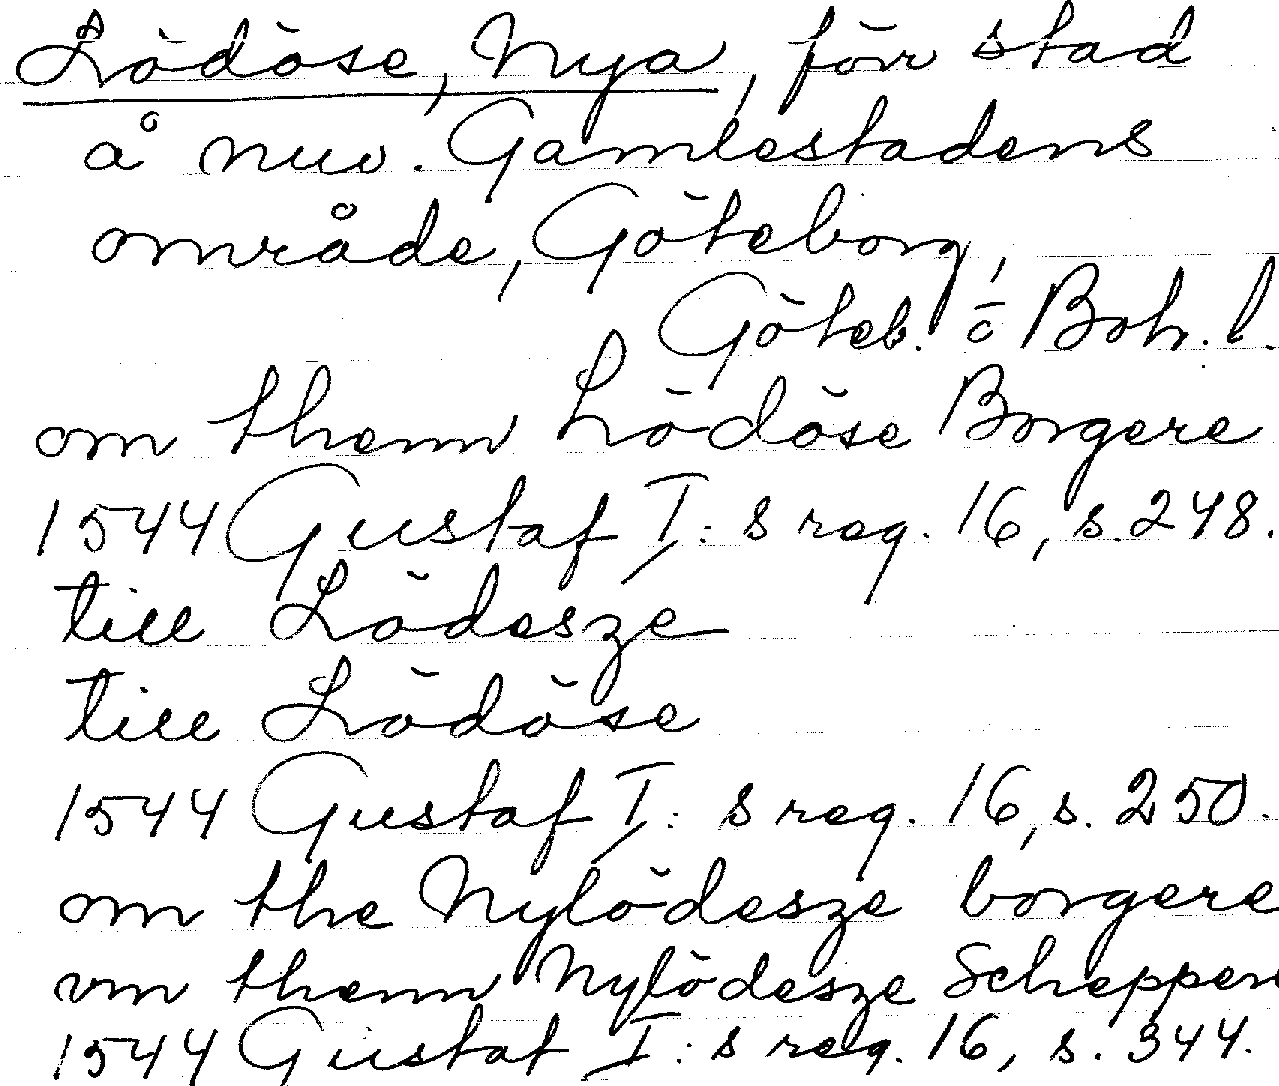 Lödöse, Nya, förr stad
å nuv. Gamlestadens
område, Göteborg,
Göteb. o Boh. l.
om thenn Lödöse Borgere
1544 Gustaf I:s reg. 16, s. 248.
till Lödesze
till Lödöse
1544 Gustaf I:s reg. 16, s. 250.
om the Nylödesze borgere
vm thenn Nylödesze Scheppen
1544 Gustaf I:s reg. 16, s. 344.